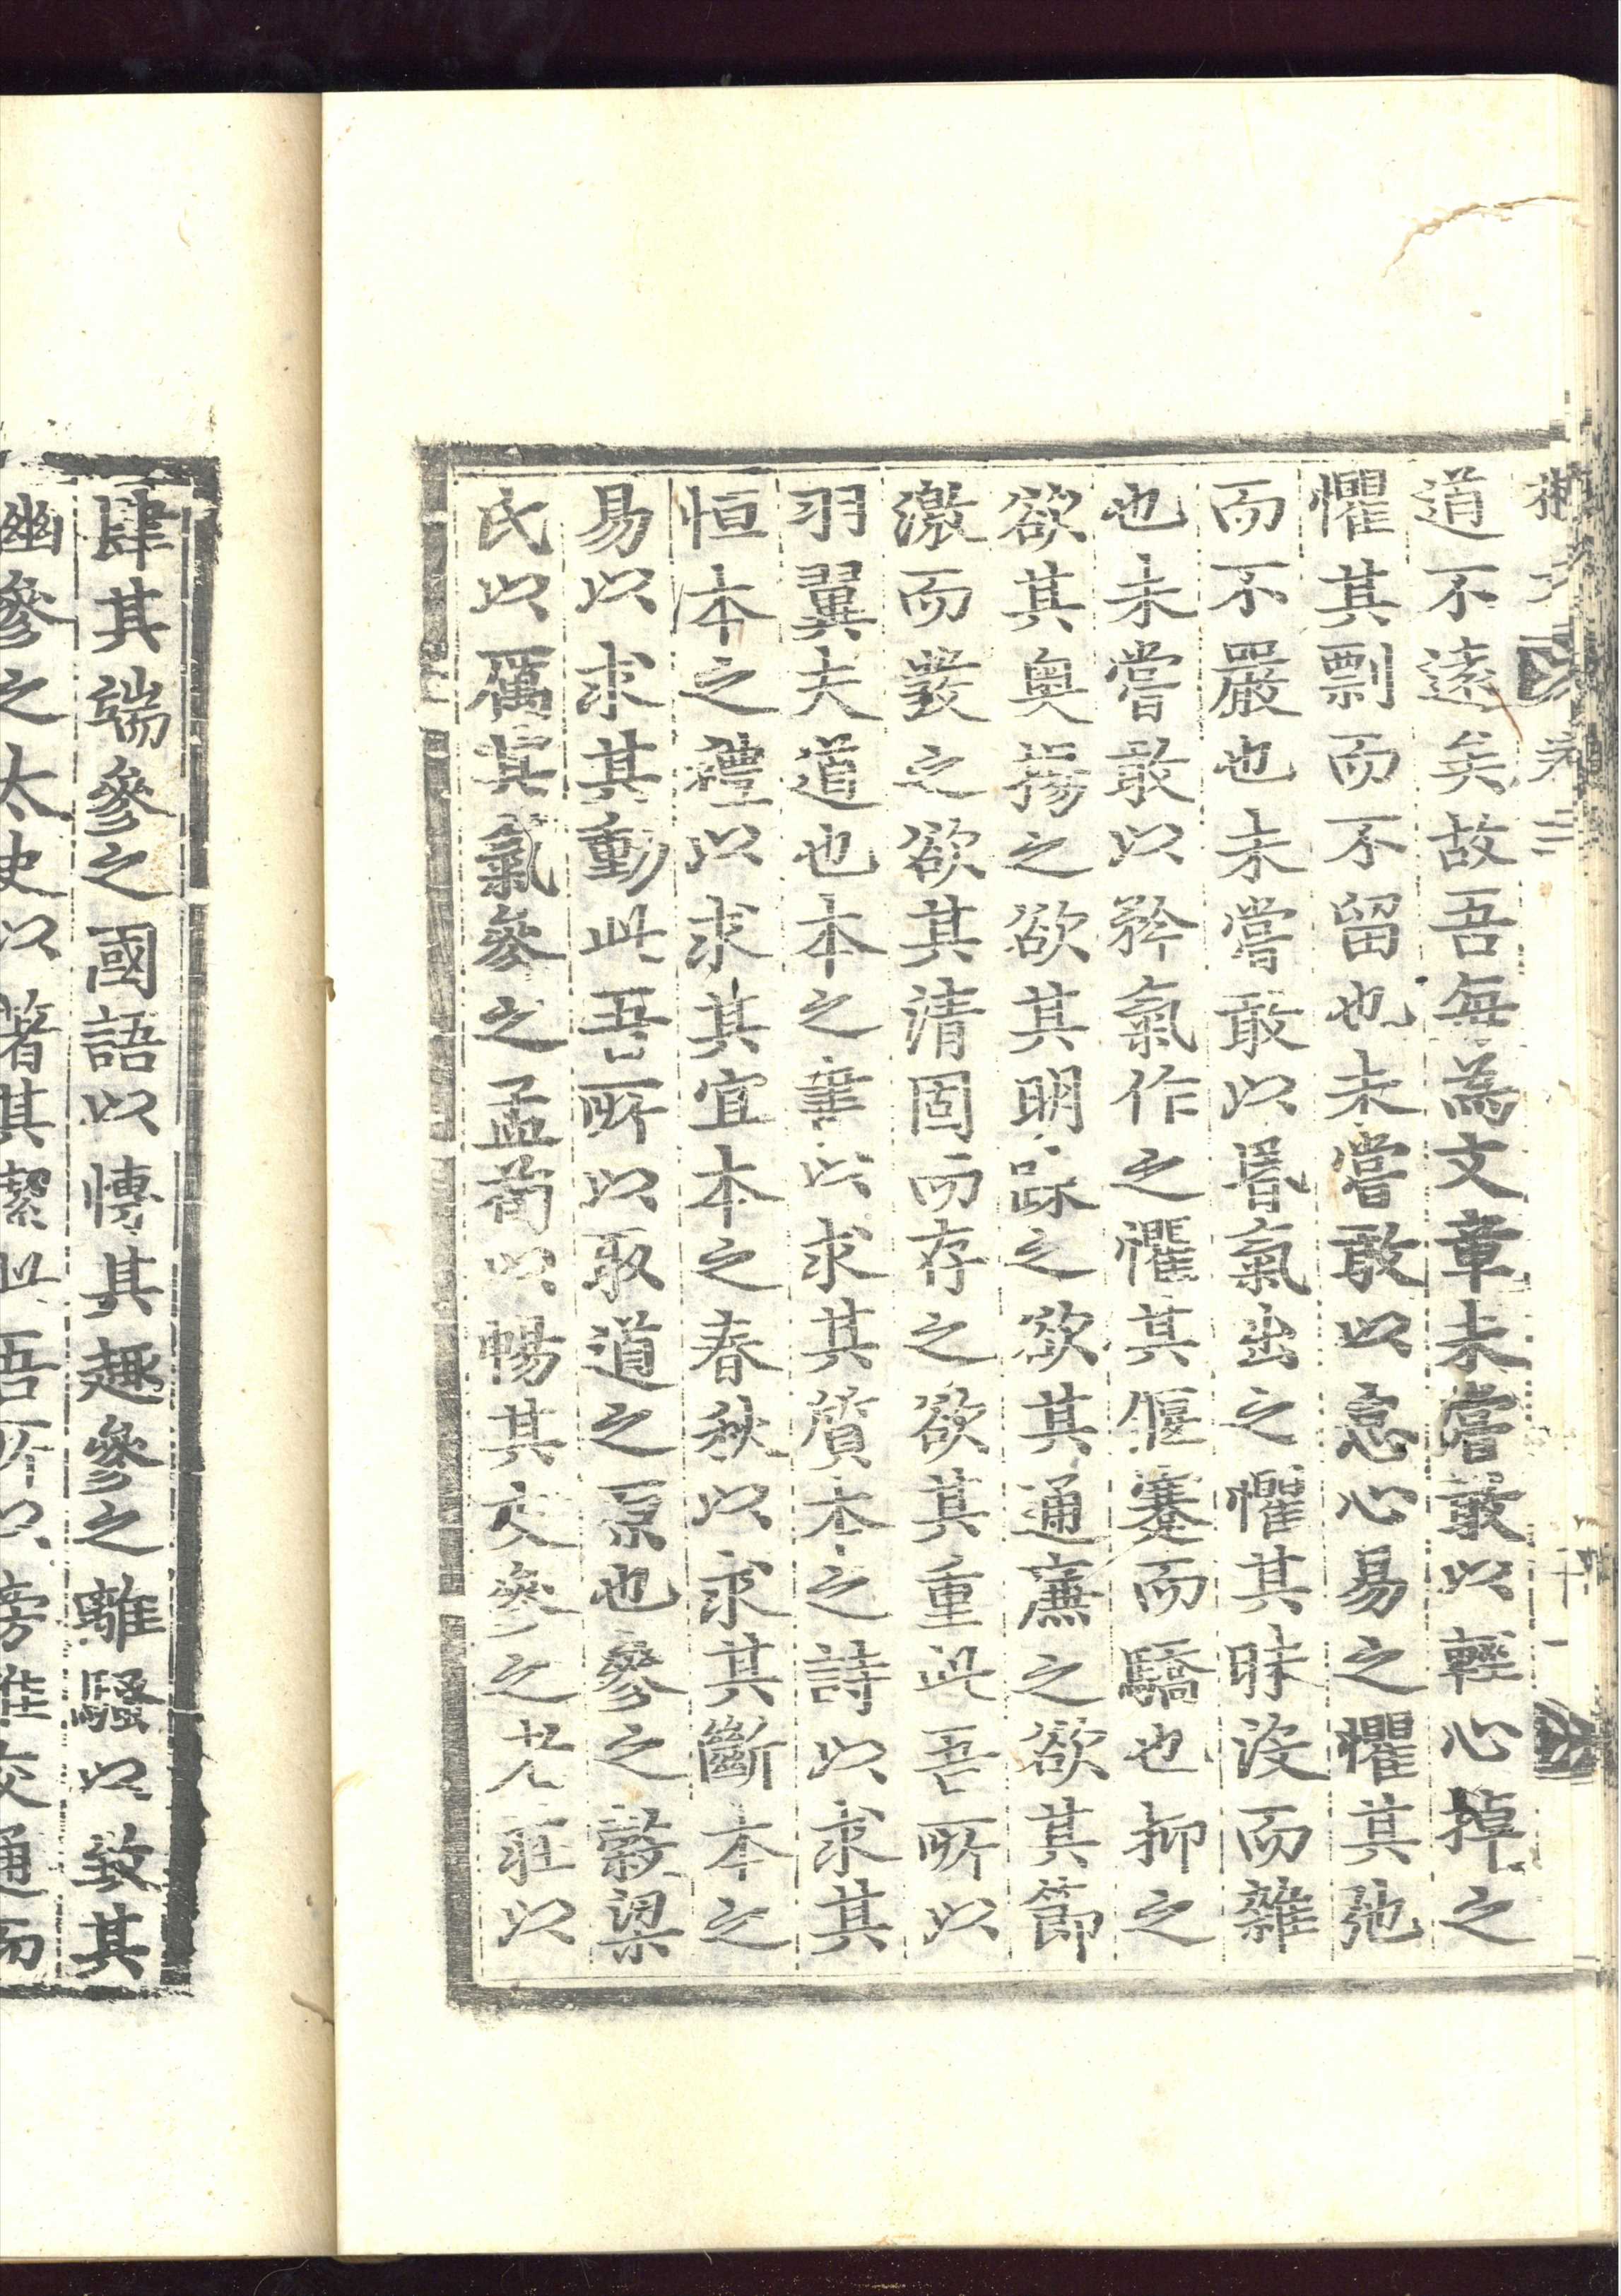 卷三
十一
道不遠矣故吾每為文章未嘗敢以輕心掉之
懼其剽而不留也未嘗敢以怠心易之懼其弛
而不嚴也未嘗敢以昬氣出之懼其昧沒而雜
也未嘗敢以矜氣作之懼其偃蹇而驕也抑之
欲其奧揚之欲其明踈之欲其通廉之欲其節
激而發之欲其清固而存之欲其重此吾所以
羽翼夫道也本之書以求其質本之詩以求其
恒本之禮以求其宜本之春秋以求其斷本之
易以求其動此吾所以取道之原也參之糓梁
氏以厲其氣參之孟荀以暢其支參之老莊以
肆其端參之國語以博其趣參之離騷以致其
幽參之太史以著其潔此吾所以旁推交通而